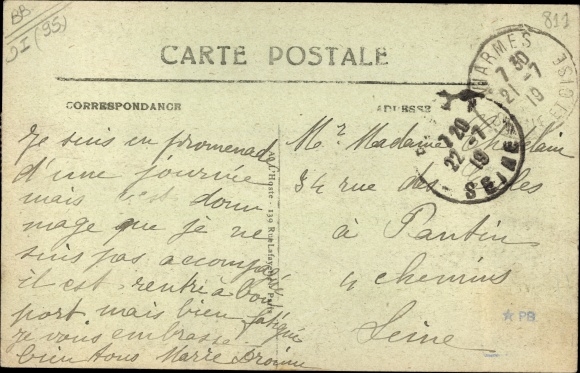 BB
DI (95)
811
CARTE POSTALE
CORRESPONDANCE
ADRESSE
MARMES
7 30
21 -7
19
OISE
7 20
22 -7
19
SEINE
Je suis en promenade
d'une journée
mais c'est dom
mage que je ne
suis pas accompagné
il est rentré à bon
port mais bien fatigué
je vous embrasse
bien tous Marie
Ad L'Hoste - 139 Rue Lafayette Paris
Mr Madame
34 rue des
à Pantin
4 chemins
Seine
PB